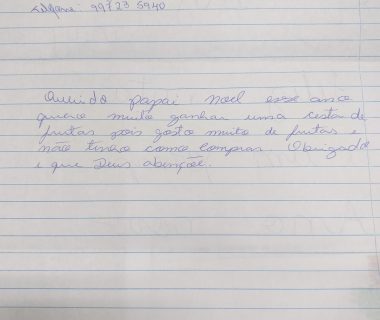 99723 5940
Querido papai Noel esse ano
quero muito ganhar uma cesta de
frutas pois gosto muito de frutas e
não tenho como comprar. Obrigado
e que Deus abençõe.